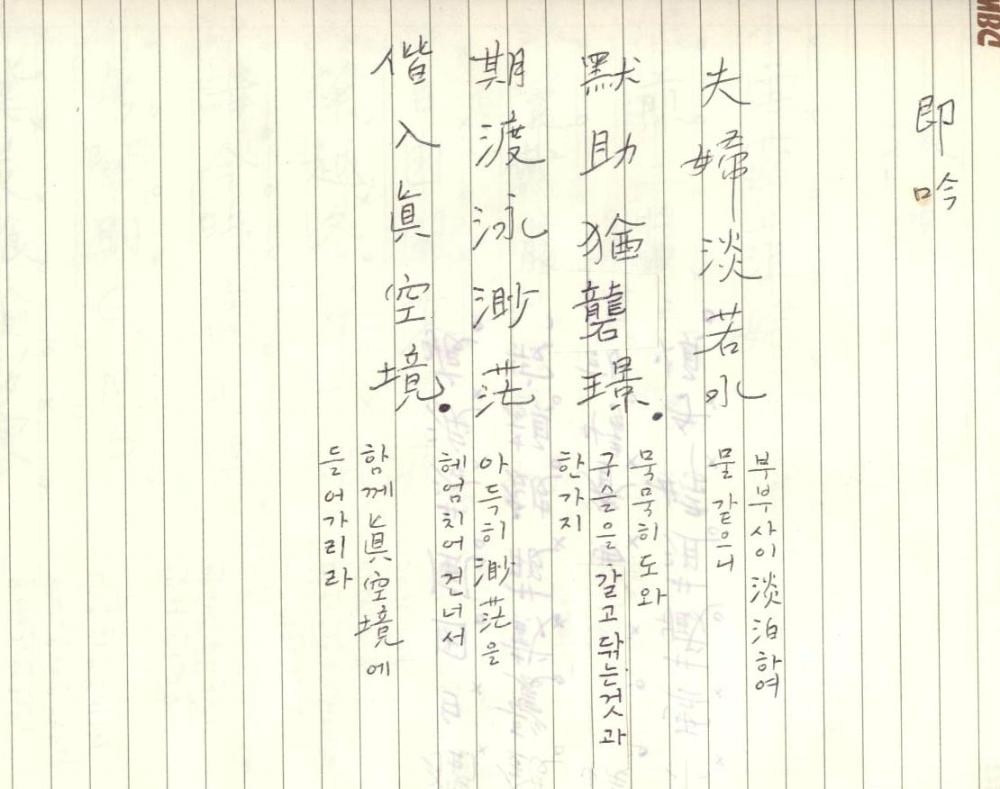 MBC
即吟
夫婦淡若水
默助猶礱璟.
期渡泳渺茫
偕入眞空境.
부부사이 淡泊하여
물 같으니
묵묵히 도와
구슬을 갈고 닦는것과
한가지
아득히 渺茫을
헤엄치어 건너서
함께 眞空境에
들어가리라